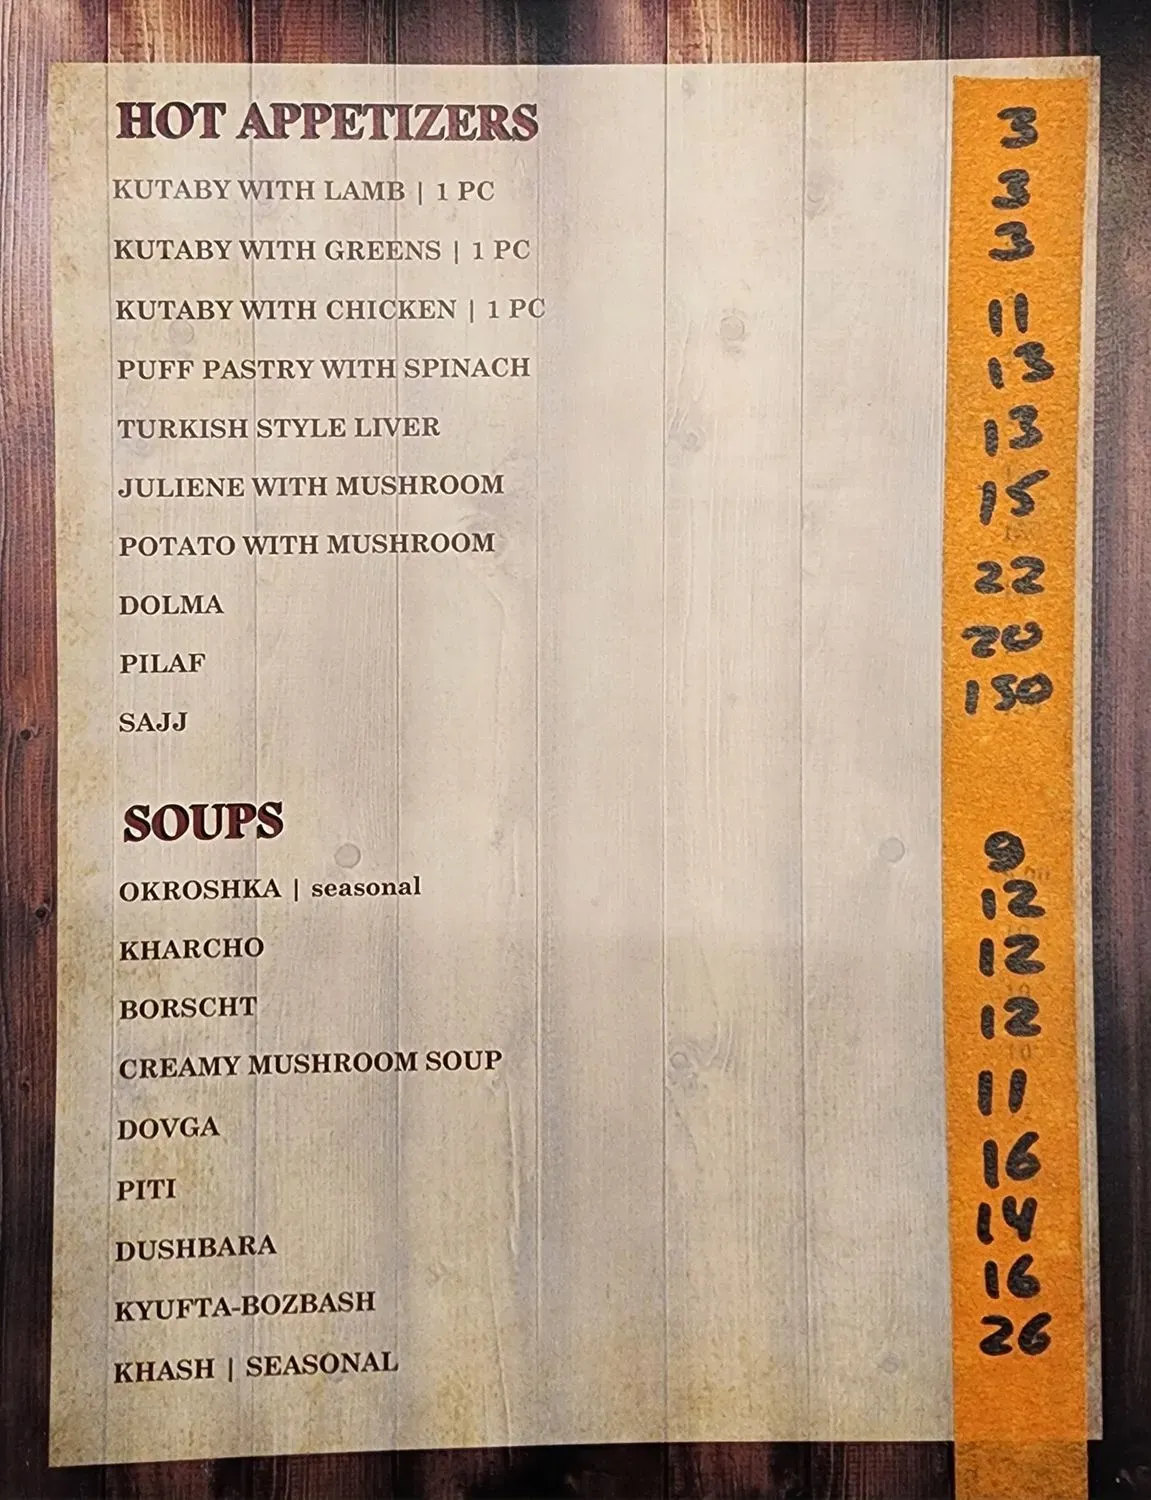 HOT APPETIZERS
3
KUTABY WITH LAMB | 1 PC
3
KUTABY WITH GREENS | 1 PC
3
KUTABY WITH CHICKEN | 1 PC
11
PUFF PASTRY WITH SPINACH
13
TURKISH STYLE LIVER
13
JULIENE WITH MUSHROOM
15
POTATO WITH MUSHROOM
22
DOLMA
20
PILAF
150
SAJJ
SOUPS
9
OKROSHKA | seasonal
12
KHARCHO
12
BORSCHT
12
CREAMY MUSHROOM SOUP
11
DOVGA
16
PITI
14
DUSHBARA
16
KYUFTA-BOZBASH
26
KHASH | SEASONAL